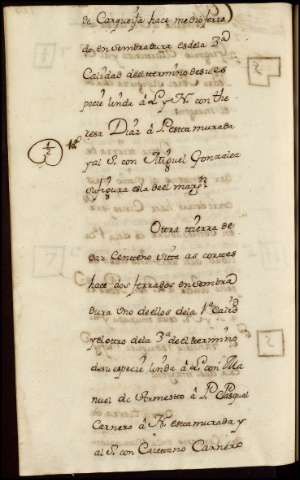 de Carqueija hace medio ferra
do en sembradura es dela 3ª
Calidad del termino desu es
pecie linda á L. y N. con the
resa Diaz á P. esta murada
y al S. con Miguel Gonzalez
su figura esla del margⁿ
Otra tierra de
dar Centeno sitta as cortes
hace dos ferrados en sembra
dura uno de ellos dela 1ª calidᵈ
y el otro dela 3ª de el termino
desu especie linda á L. con Ma
nuel de Armesto á P. Pasqual
Carnero á N. esta murada y
al S. con Caietano Carnero